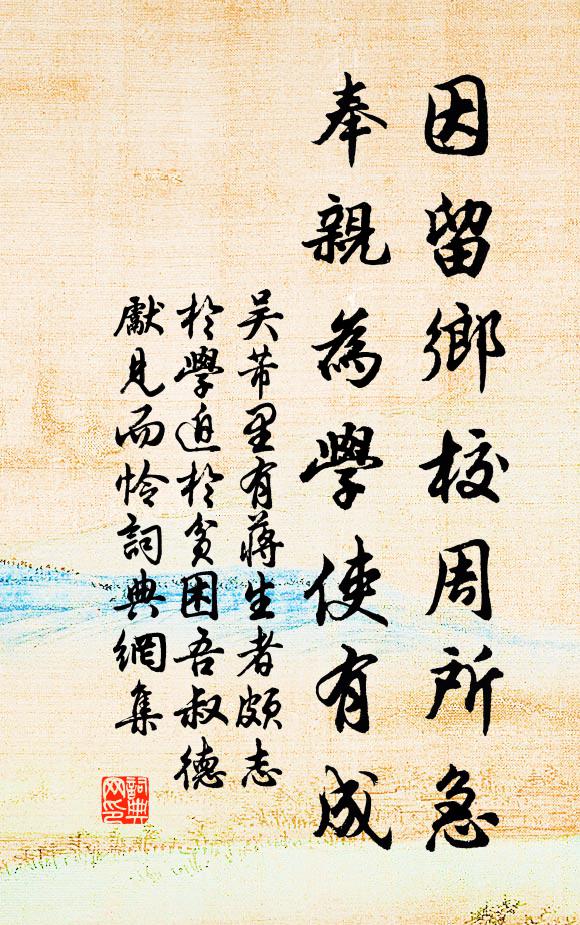 因留鄉校周所急
奉親為學使有成
吴芾里有蔣生者頗志
於學迫於貧困吾叔德
獻見而怜詞典網集
詞典
网印